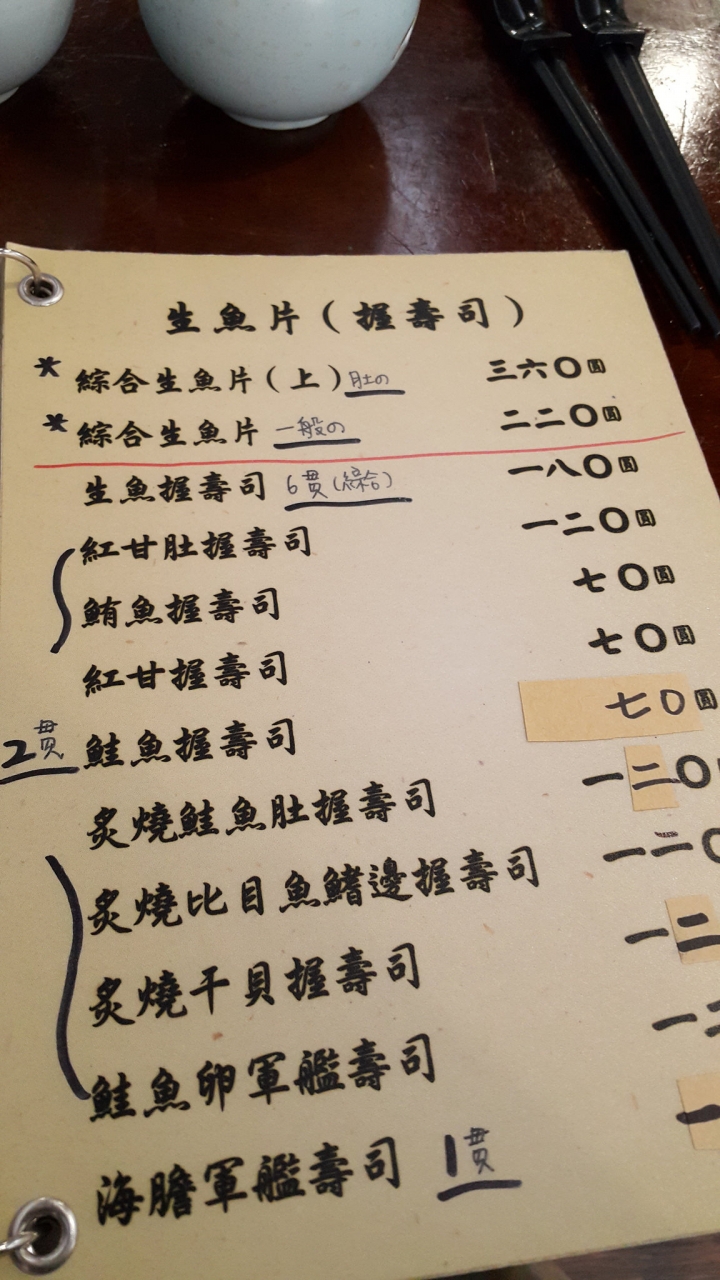 生魚片(握壽司)
*綜合生魚片(上)肚の 三六〇圓
*綜合生魚片 一般の 二二〇圓
生魚握壽司 6貫(綜合) 一八〇圓
紅甘肚握壽司 一二〇圓
鮪魚握壽司 七〇圓
紅甘握壽司 七〇圓
2貫 鮭魚握壽司 七〇圓
炙燒鮭魚肚握壽司 一二〇
炙燒比目魚鰭邊握壽司 一二〇
炙燒干貝握壽司 一二
鮭魚卵軍艦壽司 一二
海膽軍艦壽司 1貫 一